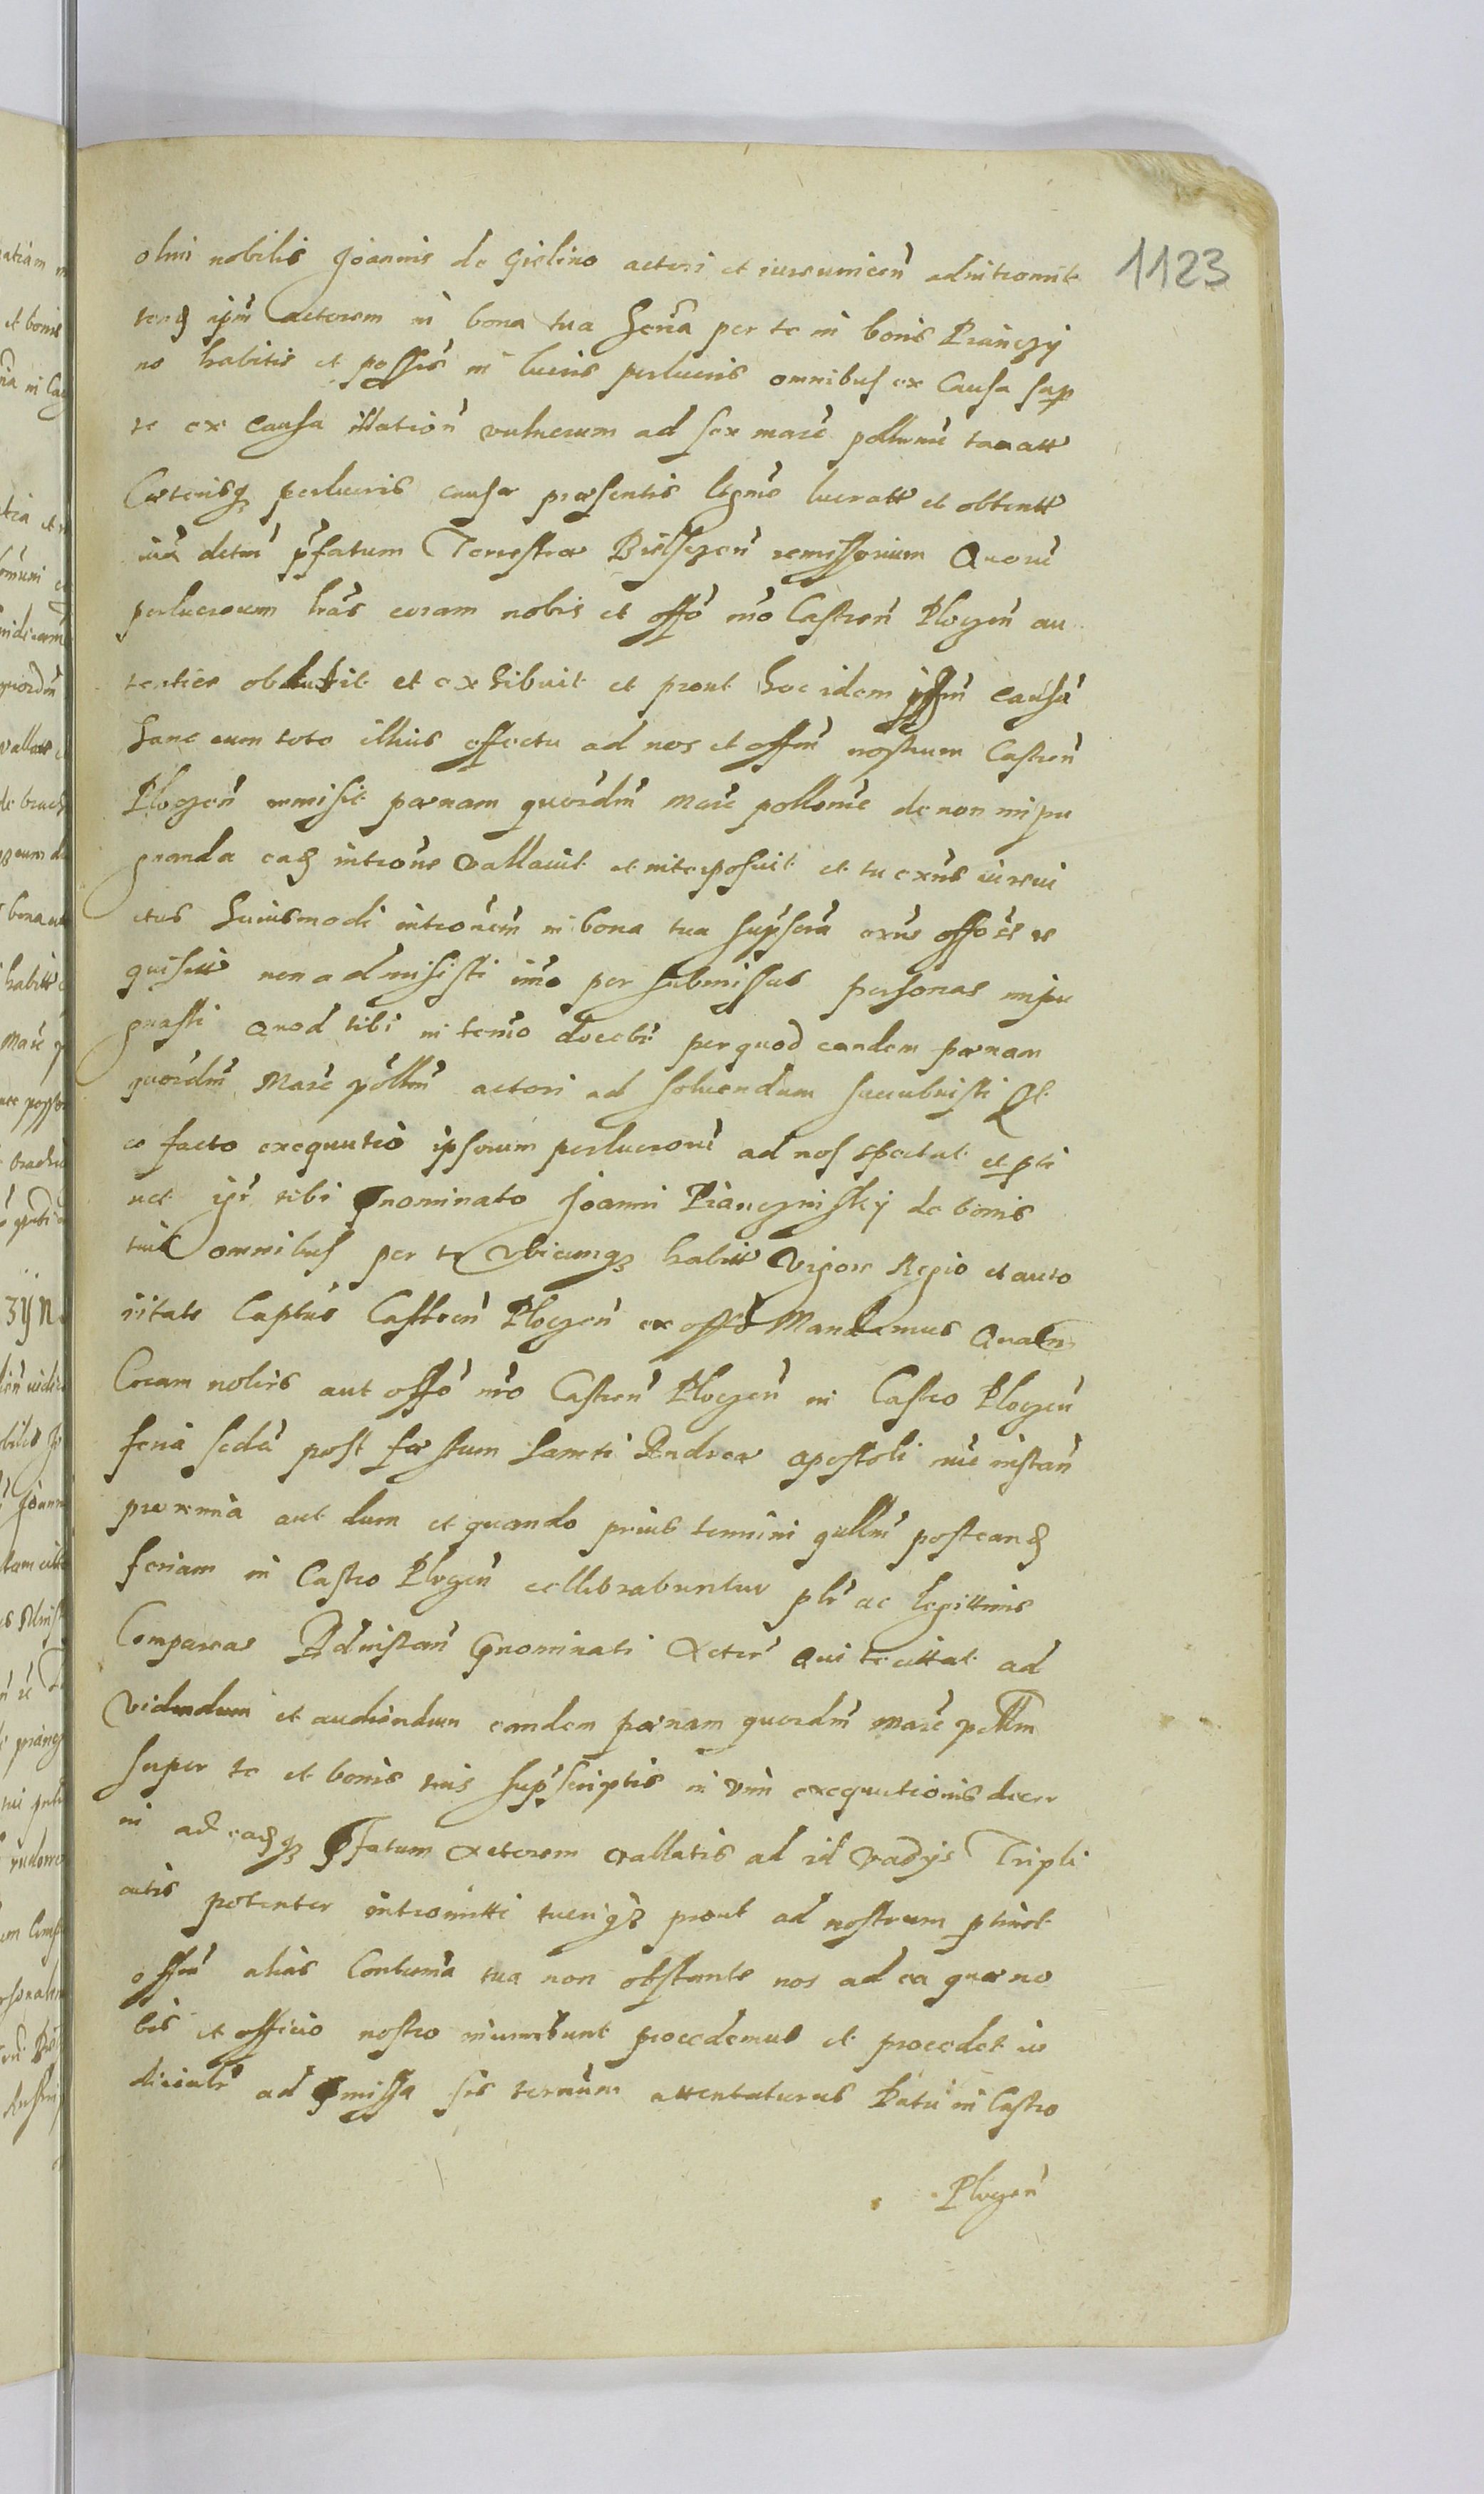 olim nobilis Joannis de Gielino actori et iurevincen̄ ad intromit
tend ipm̄ actorem in bona tua hered̄ per te in bonis Pianczy
no habitis et possis in lucris perlucris omnibus ex Causa sup
te ex causa illation̄ vulnerum ad sex marc pollonic taxatt
Cæterisq perlucris causæ præsentis legme lucratt et obtentt
iux decm̄ pfatum Terrestræ Bielscen̄ remissorium Quoru
perlucrorum lrās coram nobis et offō nrō Castren̄ Plocen̄ au
tentice obduxit et exhibuit et prout hoc idem ipsm̄ causā
hanc cum toto illius effectu ad nos et offm̄ nostrum Castren̄
Plocen̄ remisit pœnam quordm̄ Marc pollonic de non impu
gnanda ead introne vallavit et interposuit et tu exns iurevi
ctus huiusmodi intronem̄ in bona tua supscrā exn̄s offōse re
quisitt non admisisti imo per submissas personas impu
gnasti Quod tibi in termō docebr̄ per quod eandem pœnam
quordm̄ Marc pollm̄ actori ad solvendum succubuisti Et
eo facto exequutio ipsorum perlucroru ad nos spectat et pti
net ipr̄ tibi pnominato Joanni Pianczinsky de bonis
tuis omnibus per te Vbicunq habitt Vigore Regio et auto
ritate Captus Castren̄ Plocen̄ ex offō Mandamus Quatn̄
Coram nobis aut offō nrō Castren̄ Plocen̄ in Castro Plocen̄
feria scdā post fæstum Sancti Andreæ apostoli nūc instan̄
proxima aut dum et quando prius termini qullm̄ post eand
feriam in Castro Plocen̄ cellebrabuntur plr̄ ac legittime
Compareas Ad instan̄ pnominati Actōr̄ Qui te cittat ad
Videndum et audiendum eandem pœnam quordm̄ marc pollm
super te et bonis tuis supscriptis in vim exequutionis decer
ni ad eadq pfatum actorem vallatis ad id vadys Tripli
catis potenter intromitti tueriq prout ad nostrum ptinet
offm̄ alias Contuma tua non obstante nos ad ea quæ no
bis et officio nostro incumbunt procedemus et procedet iu
dicialr̄ ad pmissa sis termnm̄ attentaturus Datū in Castro
Plocen̄
1123